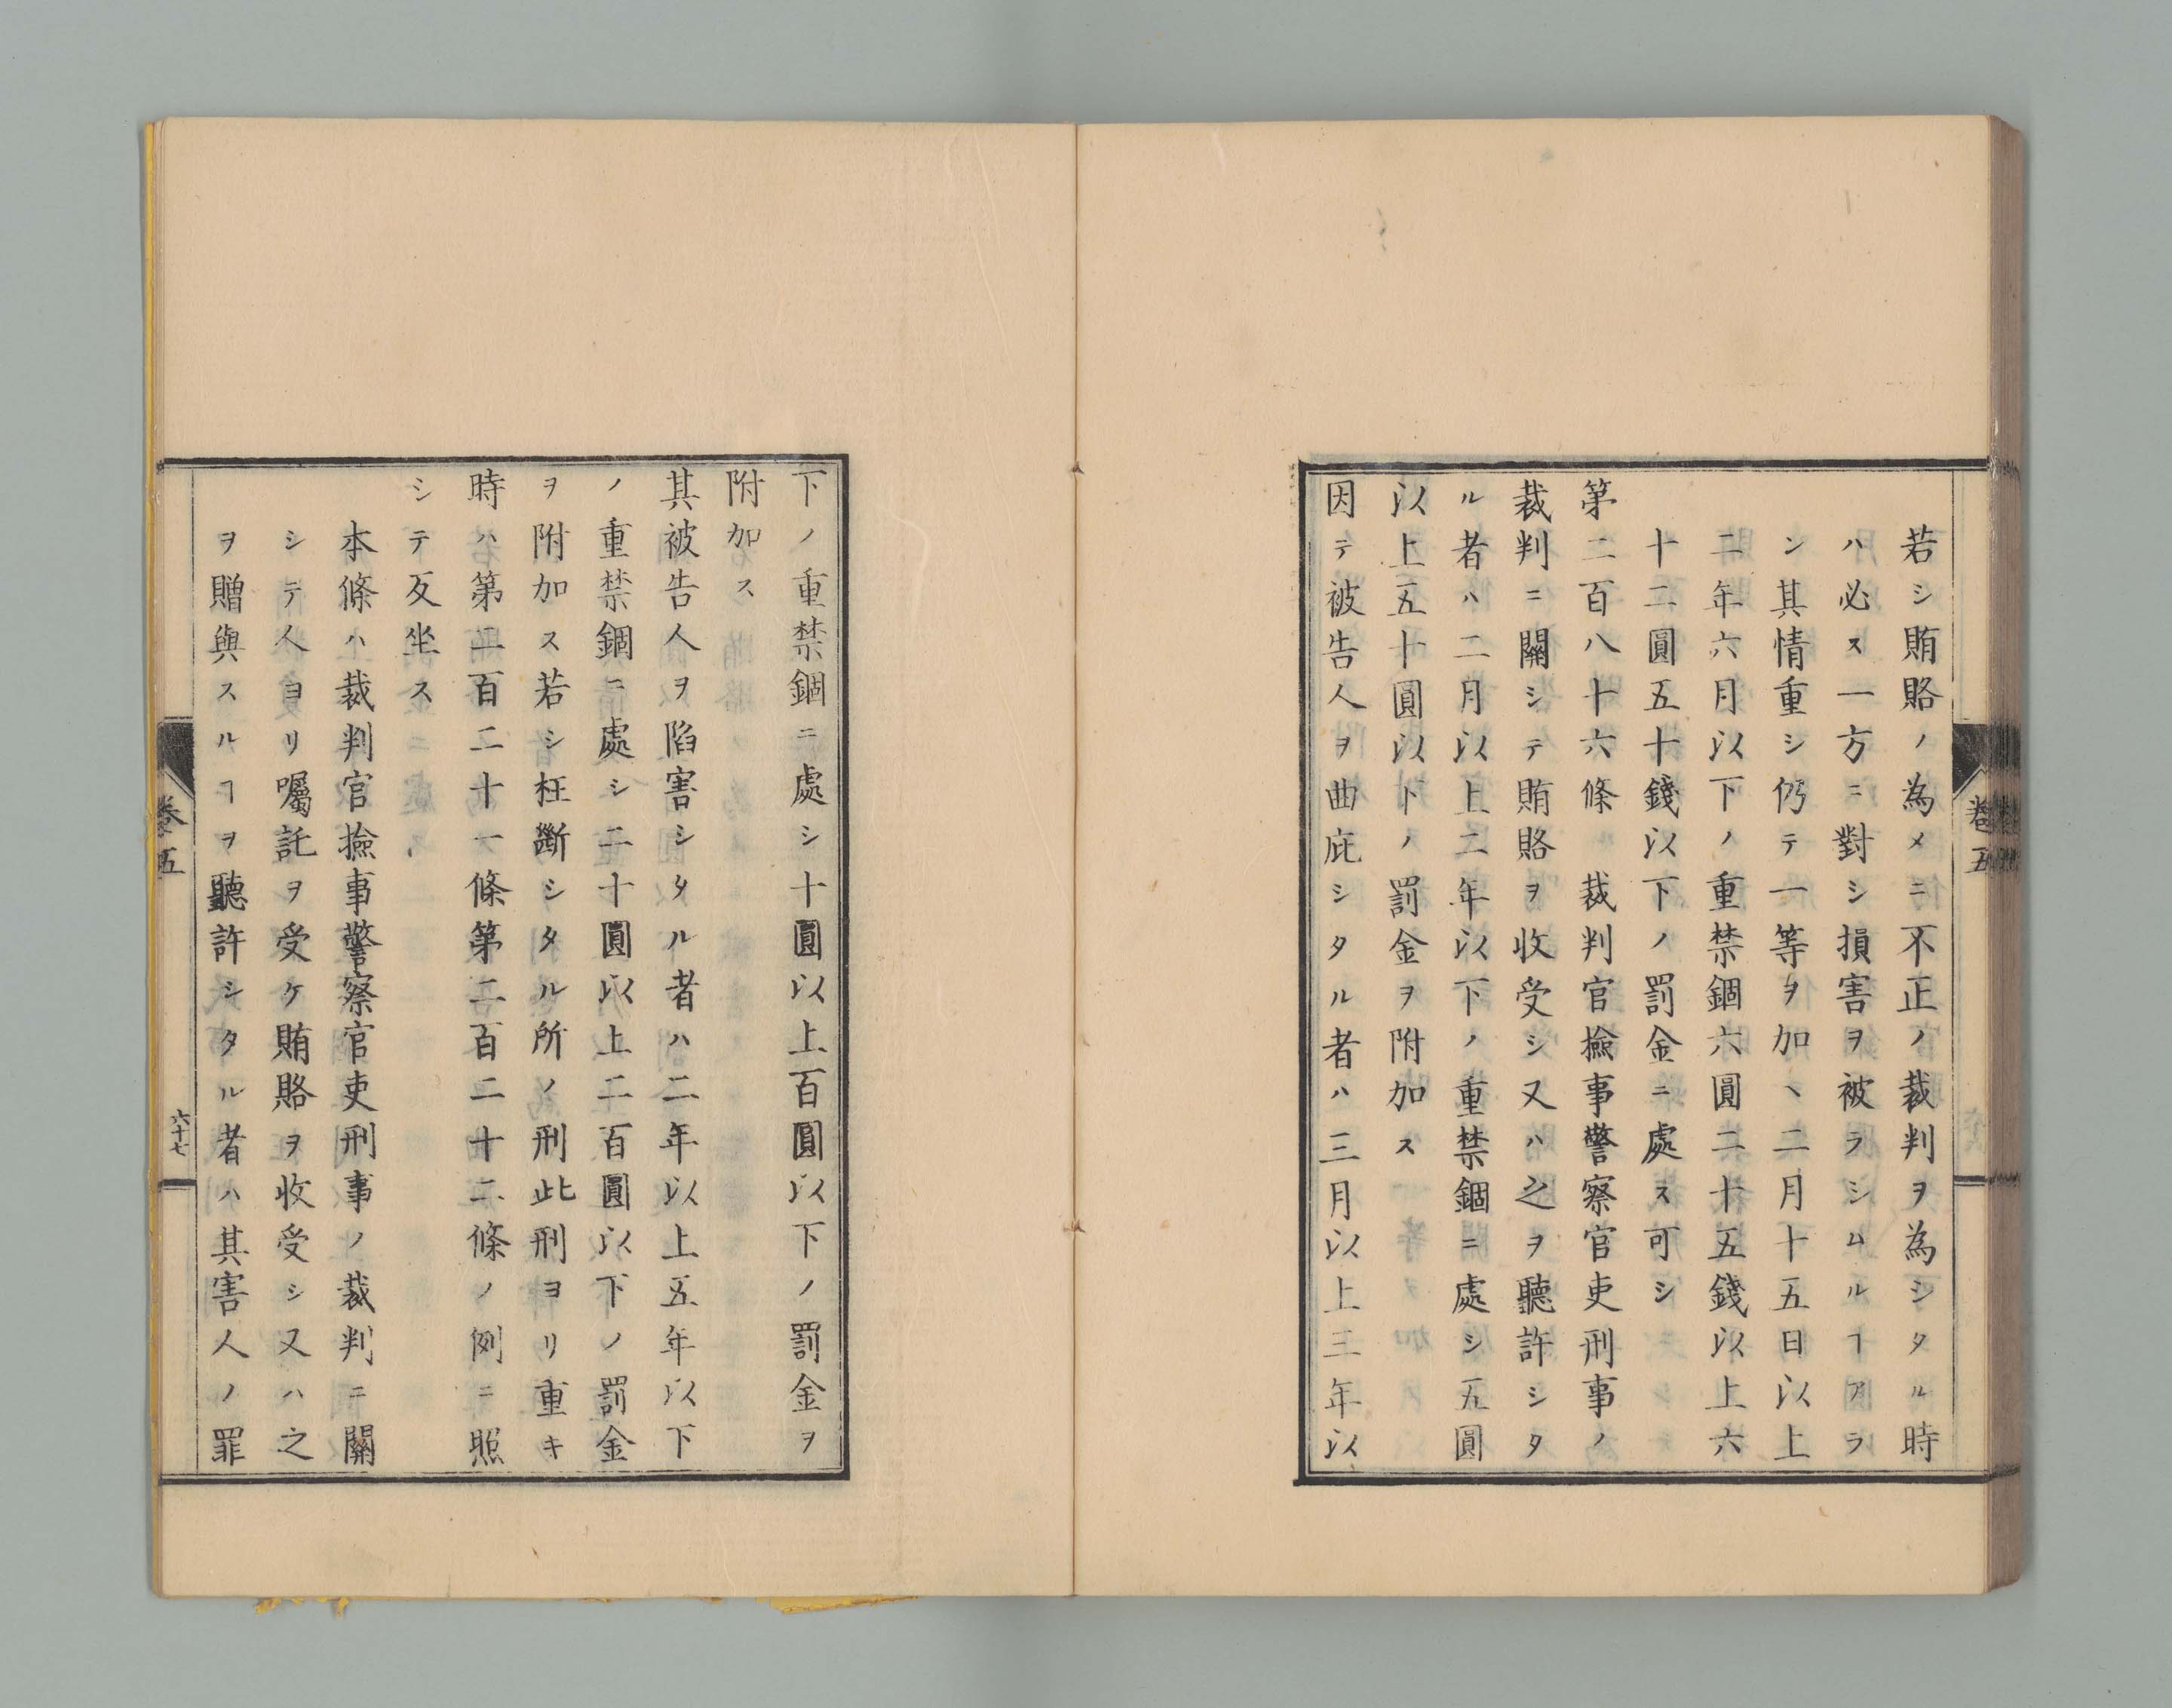 若シ賄賂ノ為メニ不正ノ裁判ヲ為シタル時
ハ必ス一方ニ對シ損害ヲ被ラシムルヿアラ
ン其情重シ仍テ一等ヲ加ヘ二月十五日以上
二年六月以下ノ重禁錮六圓二十五錢以上六
十二圓五十錢以下ノ罰金ニ處ス可シ
第二百八十六條 裁判官撿事警察官吏刑事ノ
裁判ニ關シテ賄賂ヲ收受シ又ハ之ヲ聽許シタ
ル者ハ二月以上二年以下ノ重禁錮ニ處シ五圓
以上五十圓以下ノ罰金ヲ附加ス
因テ被告人ヲ曲庇シタル者ハ三月以上三年以
卷五
下ノ重禁錮ニ處シ十圓以上百圓以下ノ罰金ヲ
附加ス
其被告人ヲ陷害シタル者ハ二年以上五年以下
ノ重禁錮ニ處シ二十圓以上二百圓以下ノ罰金
ヲ附加ス若シ枉斷シタル所ノ刑此刑ヨリ重キ
時ハ第二百二十一條第二百二十二條ノ例ニ照
シテ反坐ス
本條ハ裁判官撿事警察官吏刑事ノ裁判ニ關
シテ人ヨリ囑託ヲ受ケ賄賂ヲ收受シ又ハ之
ヲ贈與スルヿヲ聽許シタル者ハ其害人ノ罪
卷五
六十七